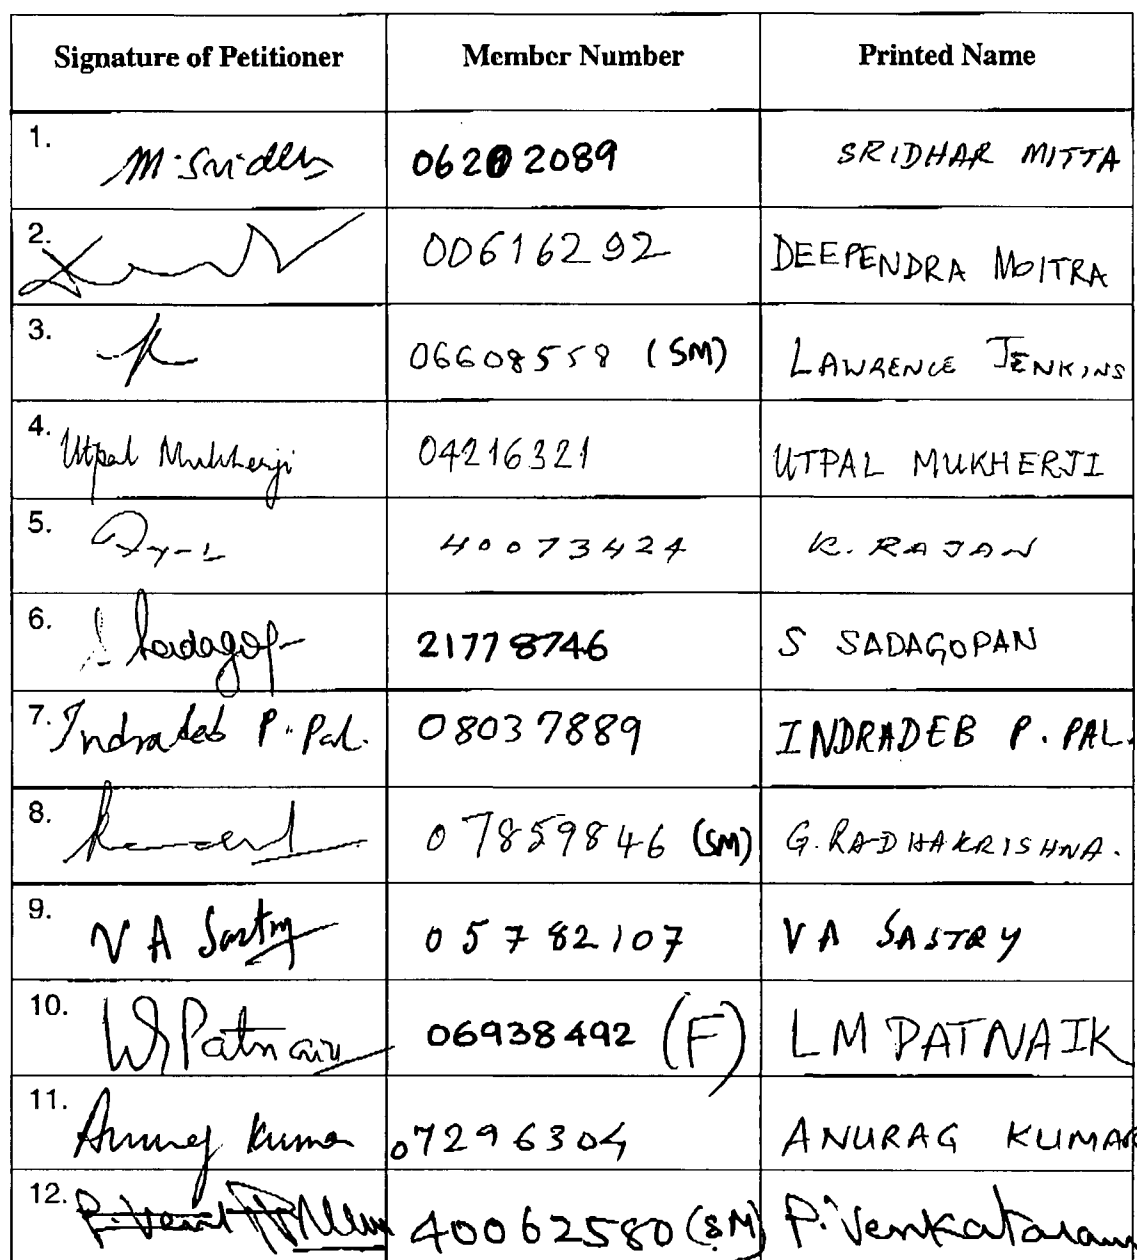 Signature of Petitioner Member Number Printed Name
1. M. Sridhar 06202089 SRIDHAR MITTA
2. 00616292 DEEPENDRA MOITRA
3. 06608558 (SM) LAWRENCE JENKINS
4. Utpal Mukherji 04216321 UTPAL MUKHERJI
5. 40073424 K. RAJAN
6. S Sadagop 21778746 S SADAGOPAN
7. Indradeb P. Pal. 08037889 INDRADEB P. PAL.
8. 07859846 (SM) G. RADHAKRISHNA.
9. V A Sastry 05782107 V A SASTRY
10. Patnaik 06938492 (F) L M PATNAIK
11. Anurag Kumar 07296304 ANURAG KUMAR
12. 40062580 (SM) P. Venkataram